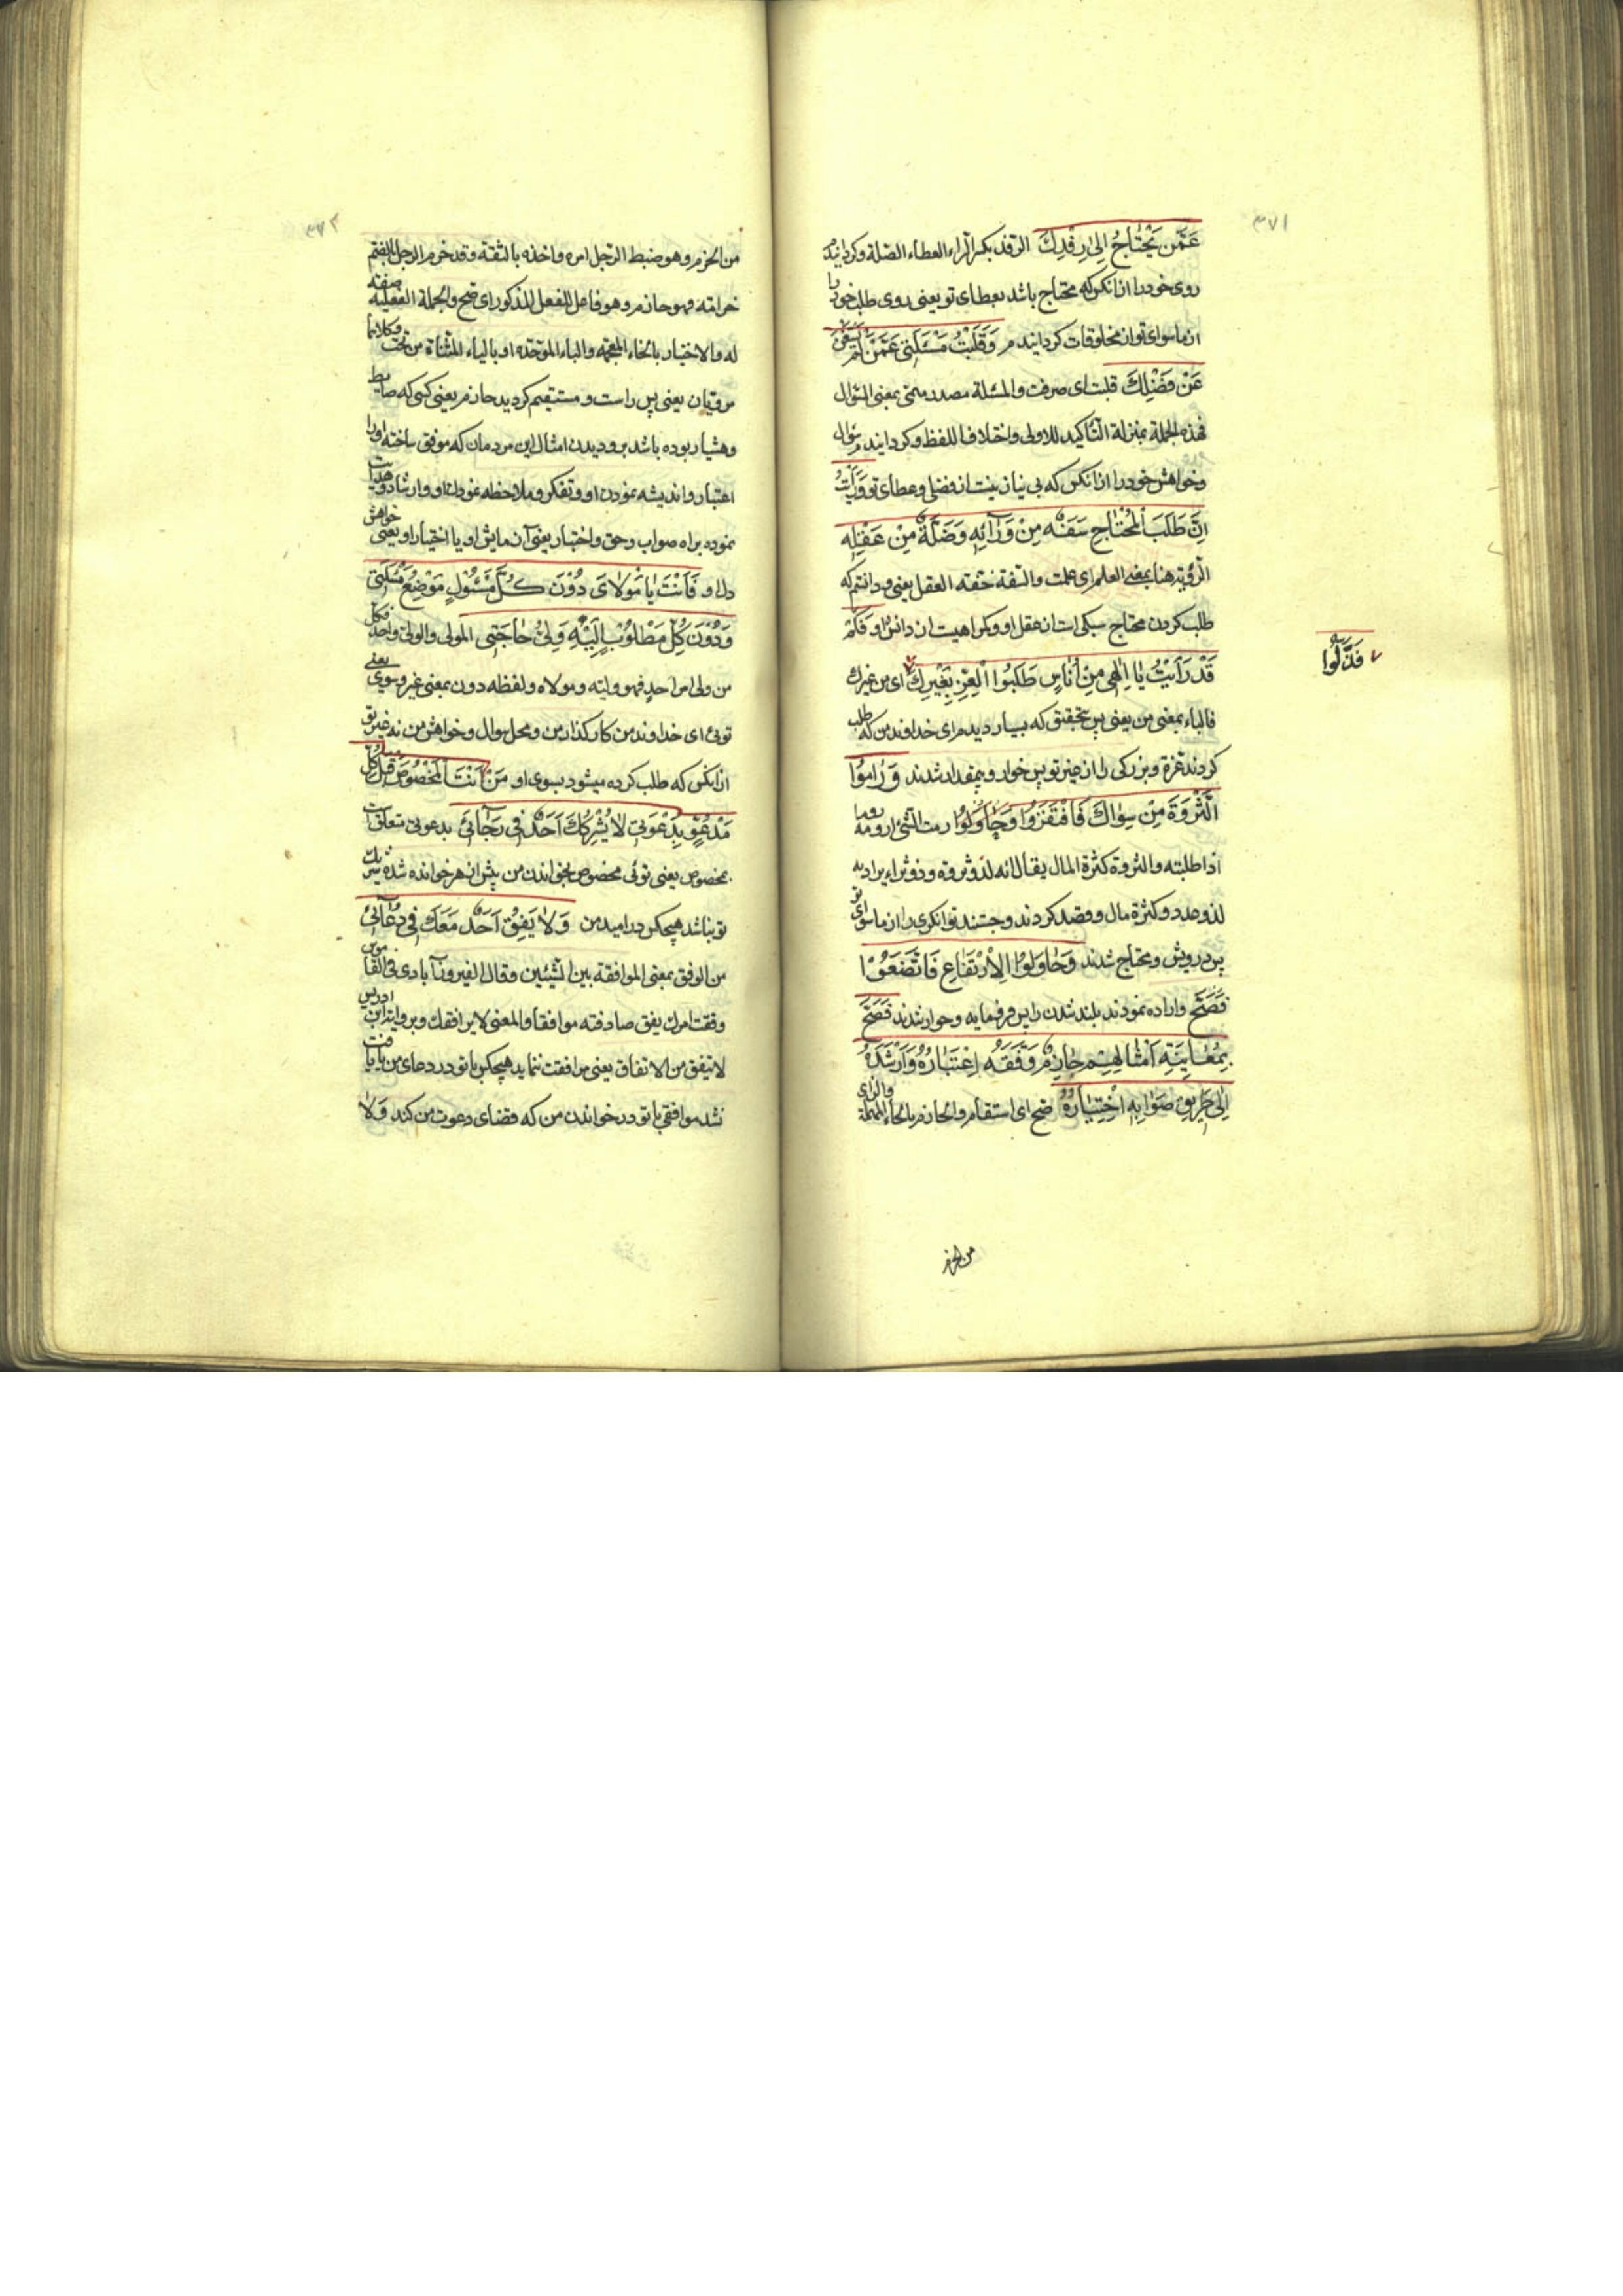 ۳۷۱
عَمَّن يَحْتَاجُ اِلىٰ رِفْدِكَ الرفد بكسر الراء العطاء الصلة وكردانيدم
روى خود را از انكس كه محتاج باشد بعطاى تو يعنى روى طلب خود را
از ماسواى تو از مخلوقات كردانيدم وَقَلَبْتُ مَسْئَلَتي عَمَّنْ لَمْ يَسْتَغْنِ
عَنْ فَضْلِكَ قلبت اى صرفت والمسئلة مصدر ميمى بمعنى السؤال
فهذه الجملة بمنزلة التأكيد للاولى واختلافا للفظ وكردانيدم سؤال
وخواهش خود را از انكس كه بى نياز نيست از فضل وعطاى تو وَرَأَيْتُ
اَنَّ طَلَبَ الْمُحْتَاجِ سَفَهٌ مِنْ رَأيِهِ وَضَلَّةٌ مِنْ عَقْلِهِ
الرؤية هنا بمعنى العلم اى علمت والسفه خفة العقل يعنى و دانستم كه
طلب كردن محتاج سبكى است از عقل او وكمراهيست از دانش او فَكَمْ
قَدْ رَأَيْتُ يٰا اِلٰهي مِنْ اُنَاسٍ طَلَبُوا الْعِزَّ بِغَيْرِكَ اى من غيرك
فَذَلُّوا
فالباء بمعنى من يعنى پس بتحقيق كه بسيار ديدم اى خداوند من كه طلب
كردند عزة وبزركى را از غير تو پس خوار و بيمقدار شدند وَرٰامُوا
الثَّرْوَةَ مِنْ سِوٰاكَ فَافْتَقَرُوا وَحٰاوَلُوا رمت الشئ ارومه روما
اذا طلبته والثروة كثرة المال يقال انه لذو ثروة وذو ثراء يراد به
لذو عدد وكثرة مال وقصد كردند وجستند توانكرى را از ماسواى تو
پس درويش ومحتاج شدند وَحٰاوَلُوا الْاِرْتِفَاعَ فَاتَّضَعُوْا
فَصَحَّ واراده نمودند بلند شدن را پس فرومايه و خوار شدند فَصَحَّ
بِمُعٰايَنَةِ اَمْثٰالِهِمْ حٰازِمٌ وَفَّقَهُ اِعْتِبَارُهُ وَاَرْشَدَهُ
اِلىٰ طَرِيقِ صَوٰابِهِ اخْتِيَارُهُ صح اى استقام والحازم بالحاء المهملة والزاى
من الحزم
۳۷۲
من الحزم وهو ضبط الرجل امره واخذه بالثقة وقد حزم الرجل بالضم
حزامته فهو حازم وهو فاعل للفعل المذكور اى صح والجملة الفعلية صفته
له والاختيار بالخاء المعجمة والباء الموحّده او بالياء المثناة من تحت وكلاهما
مرويان يعنى پس راست و مستقيم كرديد حازم يعنى كسى كه ضابط
وهشيار بوده باشد بر ديدن امثال اين مردمان كه موفق ساخته او را
اعتبار وانديشه نمودن او وتفكر وملاحظه نمودن او وارشاد وهدايت
نموده براه صواب وحق واختبار يعنى آزمايش او يا اختيار او يعنى خواهش
دل او فَاَنْتَ يٰا مَوْلاٰىَ دُوْنَ كُلِّ مَسْئُولٍ مَوْضِعُ مَسْئَلَتي
وَدُوْنَ كُلِّ مَطْلُوْبٍ اِلَيْهِ وَلِيُّ حٰاجَتِي المولى والولى واحد فكل
من ولى امر احد فهو وليه ومولاه ولفظه دون بمعنى غير وسوى يعنى
توئى اى خداوند من كار كذار من ومحل سؤال وخواهش من نه غير تو
از انكس كه طلب كرده ميشود بسوى او اَنْتَ الْمَخْصُوصُ قَبْلَ كُلِّ
مَدْعُوٍّ بِدَعْوَتي لاٰ يُشْرِكُكَ اَحَدٌ فِي رَجٰائِي بدعوتى متعلق است
بمخصوص يعنى توئى مخصوص بخواندن من پيش از هر خوانده شده شريك
تو نباشد هيچكس در اميد من وَلاٰ يَفِقُ اَحَدٌ مَعَكَ فِي دُعٰائي
من الوفق بمعنى الموافقة بين الشيئين وقال الفيروزآبادى فى القاموس
وفقت امرك يفق صادفته موافقا والمعنى لا يرافقك وبروايت ابن ادريس
لا يتفق من الاتفاق يعنى مرافقت ننمايد هيچكس با تو در دعاى من يا يافت
نشد موافقى با تو در خواندن من كه قضاى دعوت من كند وَلاٰ